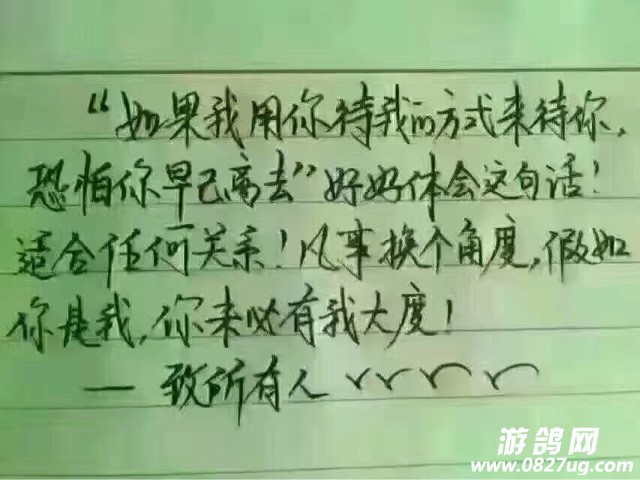 “如果我用你待我的方式来待你，
恐怕你早已离去”好好体会这句话！
适合任何关系！凡事换个角度，假如
你是我，你未必有我大度！
— 致所有人
游鸽网
www.0827ug.com